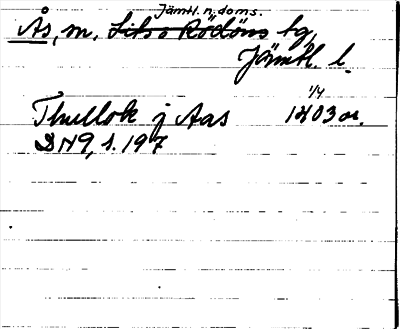 Jämtl. n. doms.
Ås, m. Lits o Rödöns tg,
Jämtl. l.
1/4
Thullok j Aas 1403 or.
DN9, s. 197